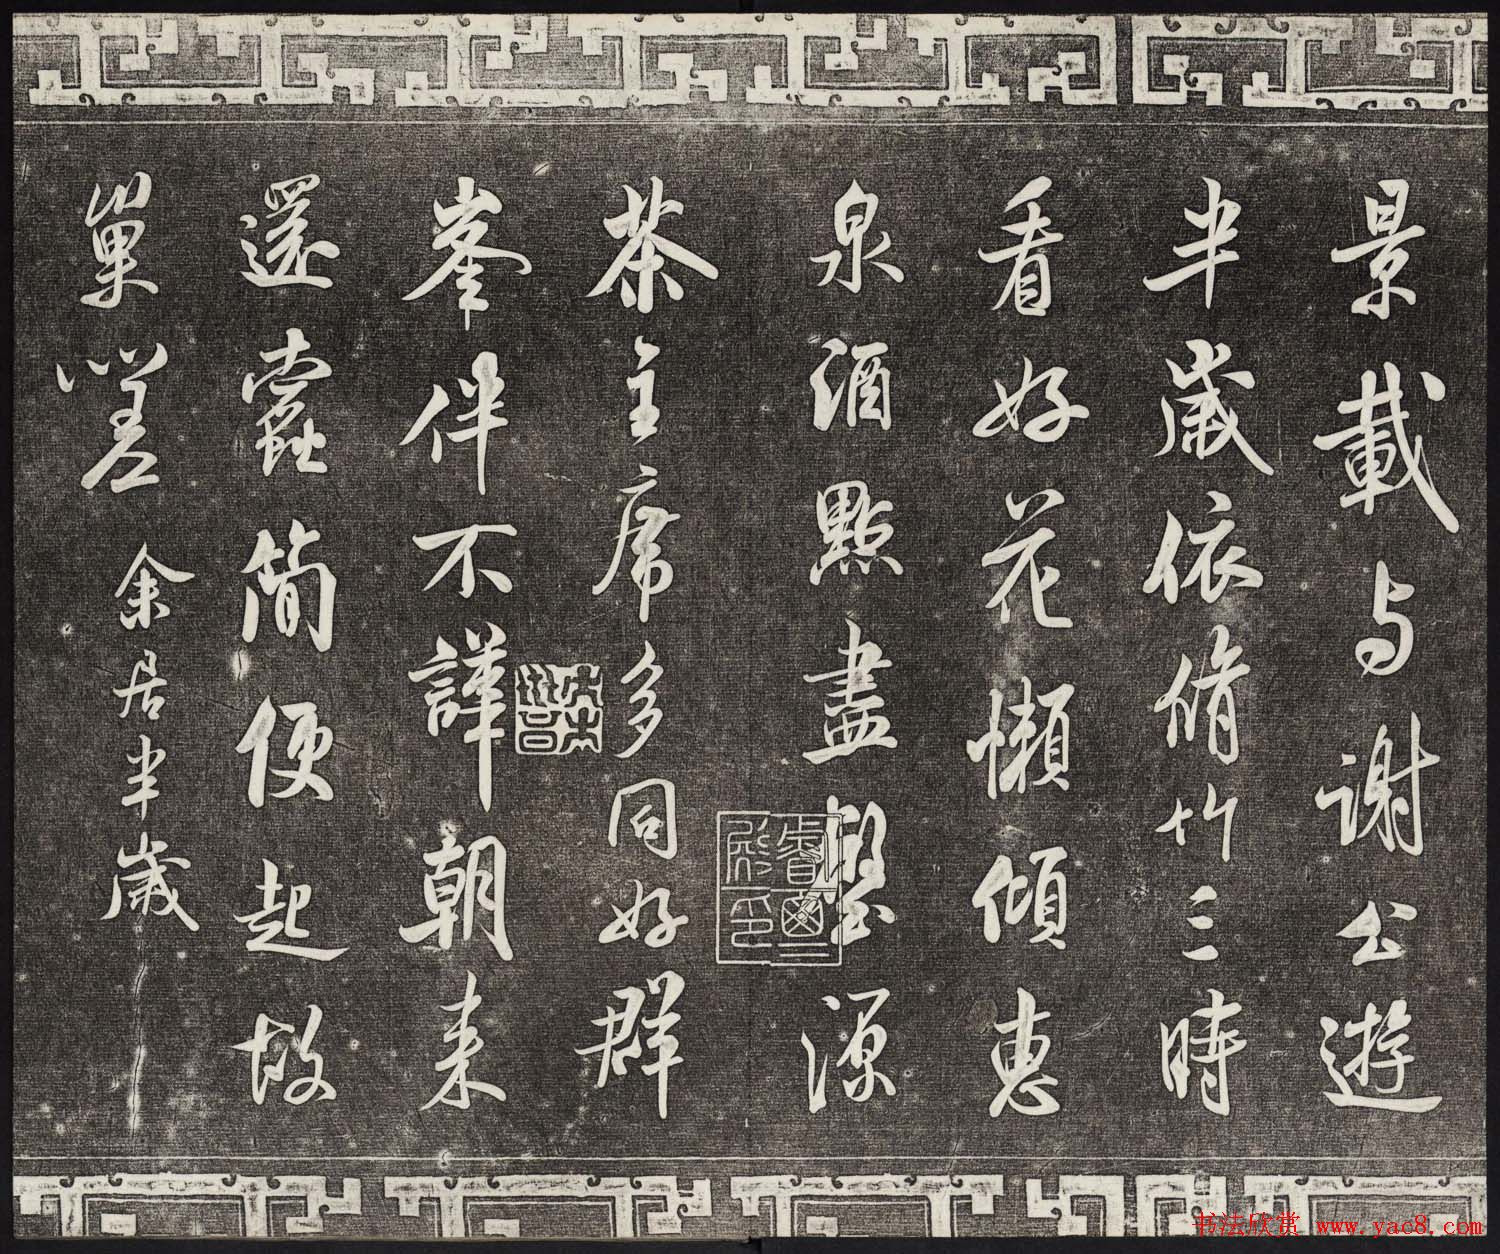 景載与謝公遊
半歲依脩竹三時
看好花懶傾惠
泉酒點盡壑源
茶主席多同好群
峯伴不譁朝来
還蠹簡便起故
巢嗟 余居半歲
书法欣赏 www.yac8.com